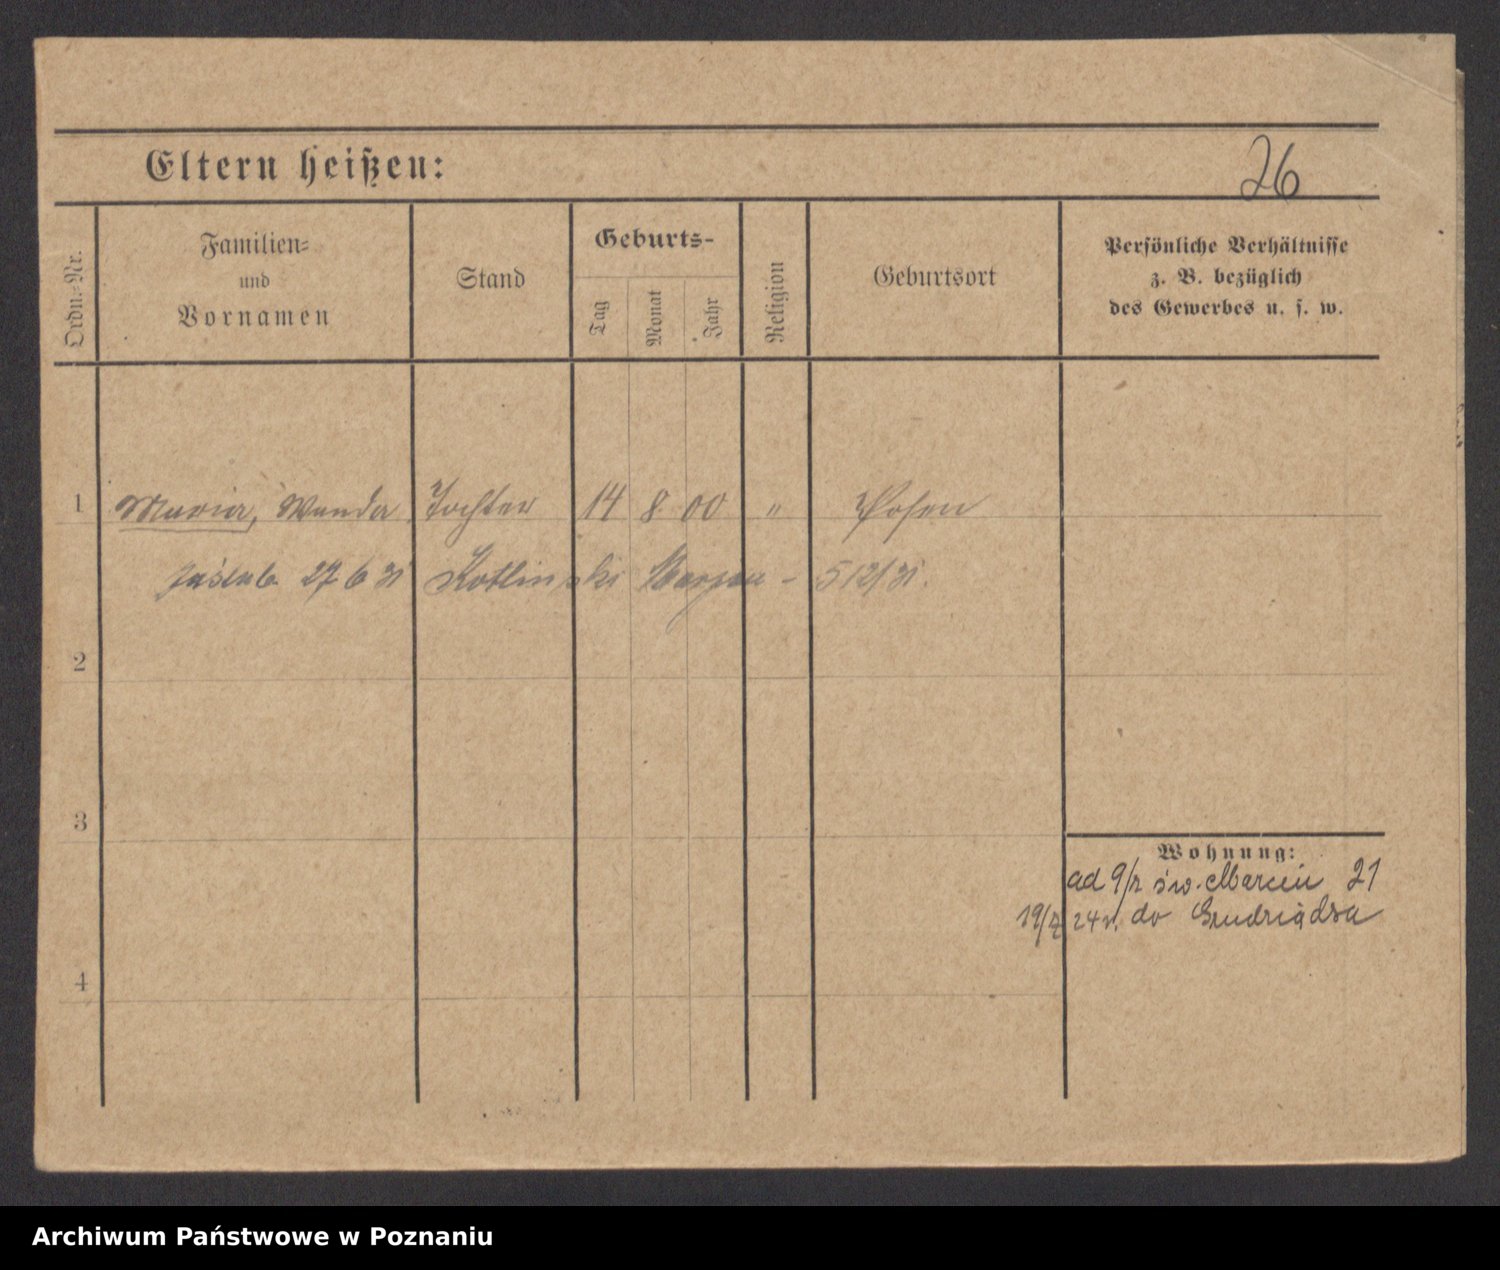 Eltern heißen:
26
Ordn.-Nr.
Familien-
und
Vornamen
Stand
Geburts-
Tag
Monat
Jahr
Religion
Geburtsort
Persönliche Verhältnisse
z. B. bezüglich
des Gewerbes u. s. w.
1 Maria, Wanda Tochter 14 8 00 " Posen
zaślub. 27 6 31 Kotliński Marjan - 5 12/31.
2
3
Wohnung:
ad 9/2 św. Marcin 21
19/7 24 r. do Grudziądza
4
Archiwum Państwowe w Poznaniu